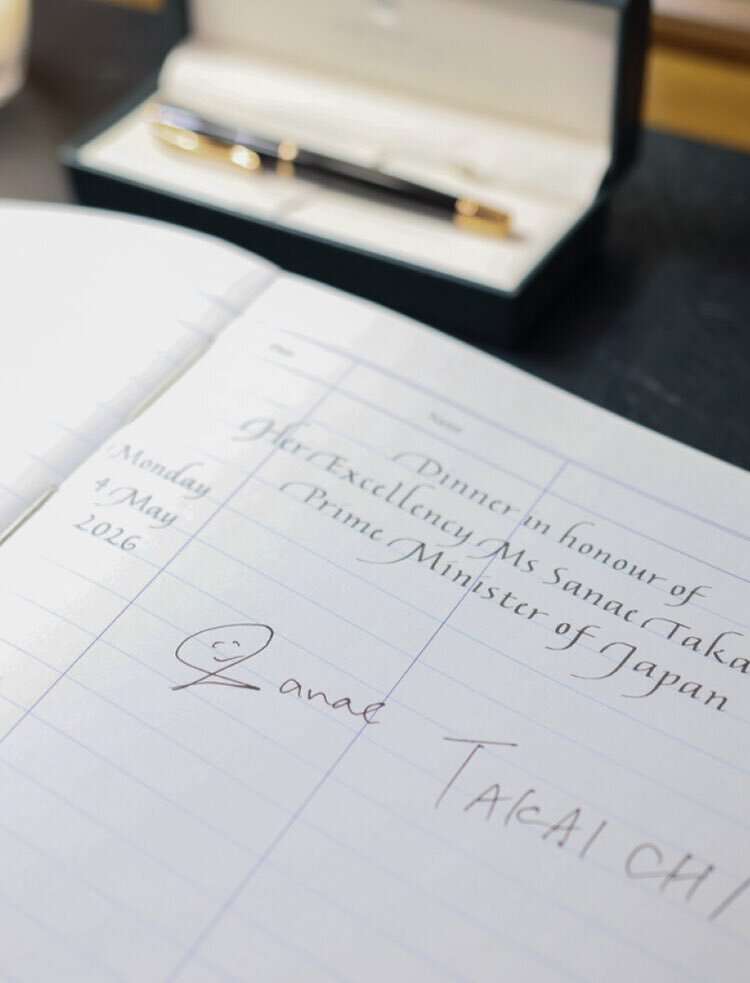 Monday
4 May
2026
Dinner in honour of
Her Excellency Ms Sanae Taka
Prime Minister of Japan
Sanae
TAKAICHI